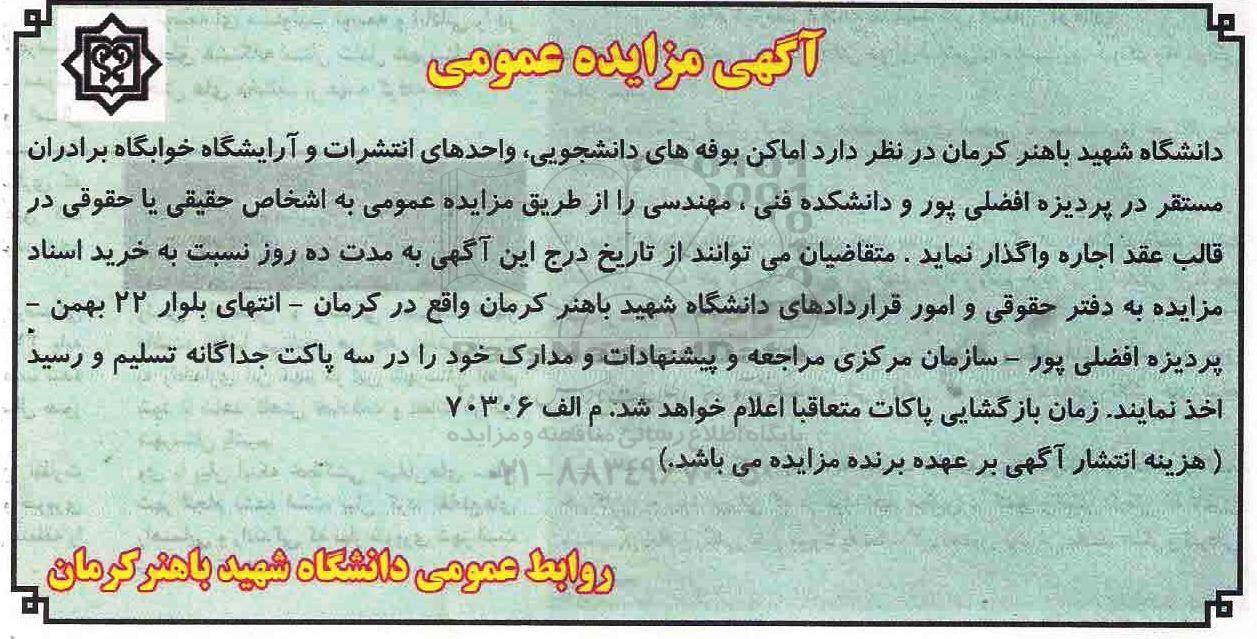 آگهی مزایده عمومی
دانشگاه شهید باهنر کرمان در نظر دارد اماکن بوفه های دانشجویی، واحدهای انتشرات و آرایشگاه خوابگاه برادران
مستقر در پردیزه افضلی پور و دانشکده فنی ، مهندسی را از طریق مزایده عمومی به اشخاص حقیقی یا حقوقی در
قالب عقد اجاره واگذار نماید . متقاضیان می توانند از تاریخ درج این آگهی به مدت ده روز نسبت به خرید اسناد
مزایده به دفتر حقوقی و امور قراردادهای دانشگاه شهید باهنر کرمان واقع در کرمان – انتهای بلوار ۲۲ بهمن –
پردیزه افضلی پور – سازمان مرکزی مراجعه و پیشنهادات و مدارک خود را در سه پاکت جداگانه تسلیم و رسید
اخذ نمایند. زمان بازگشایی پاکات متعاقبا اعلام خواهد شد. م الف ۷۰۳۰۶
پایگاه اطلاع رسانی مناقصه و مزایده
( هزینه انتشار آگهی بر عهده برنده مزایده می باشد.)
روابط عمومی دانشگاه شهید باهنر کرمان